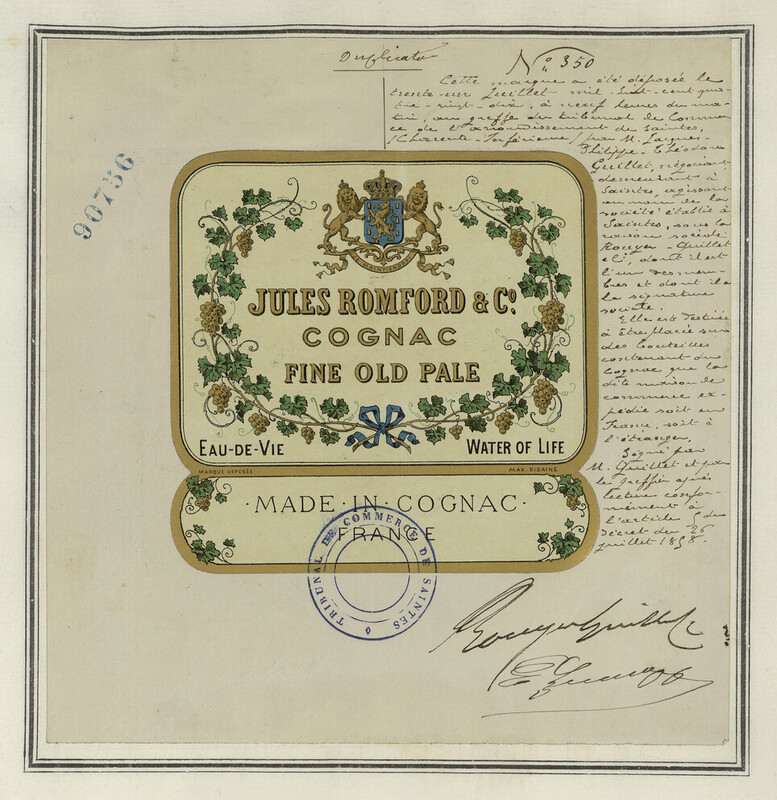 Duplicata
No 350
Cette marque a été déposée le
trente-un Juillet mil-huit-cent qua-
tre-vingt-dix, à neuf heures du ma-
tin, au greffe du tribunal de Commer-
ce de l'arrondissement de Saintes,
(Charente-Inférieure) par M. Jacques-
Philippe-Théodore
Guillet, négociant
demeurant à
Saintes, agissant
au nom de la
société établie à
Saintes, sous la
raison sociale
Rouyer-Guillet
et Cie, dont il est
l'un des mem-
bres et dont il a
la signature
sociale.
Elle est destinée
à être placée sur
des bouteilles
contenant du
Cognac que la
dite maison de
commerce ex-
pédie soit en
France, soit à
l'étranger.
Signé par
M. Guillet et par
le greffier après
lecture confor-
mément à
l'article 5 du
décret du 26
juillet 1858.
90756
JULES ROMFORD & Co.
COGNAC
FINE OLD PALE
EAU-DE-VIE
WATER OF LIFE
MARQUE DÉPOSÉE
MAX. SIDAINE
·MADE·IN·COGNAC·
FRANCE
TRIBUNAL DE COMMERCE DE SAINTES
Rouyer Guillet